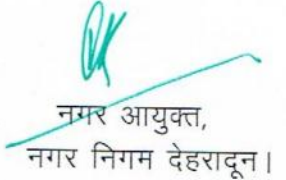 नगर आयुक्त,
नगर निगम देहरादून।